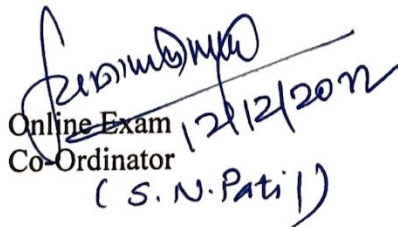 Online Exam 12/12/2022
Co-Ordinator
( S. N. Patil )